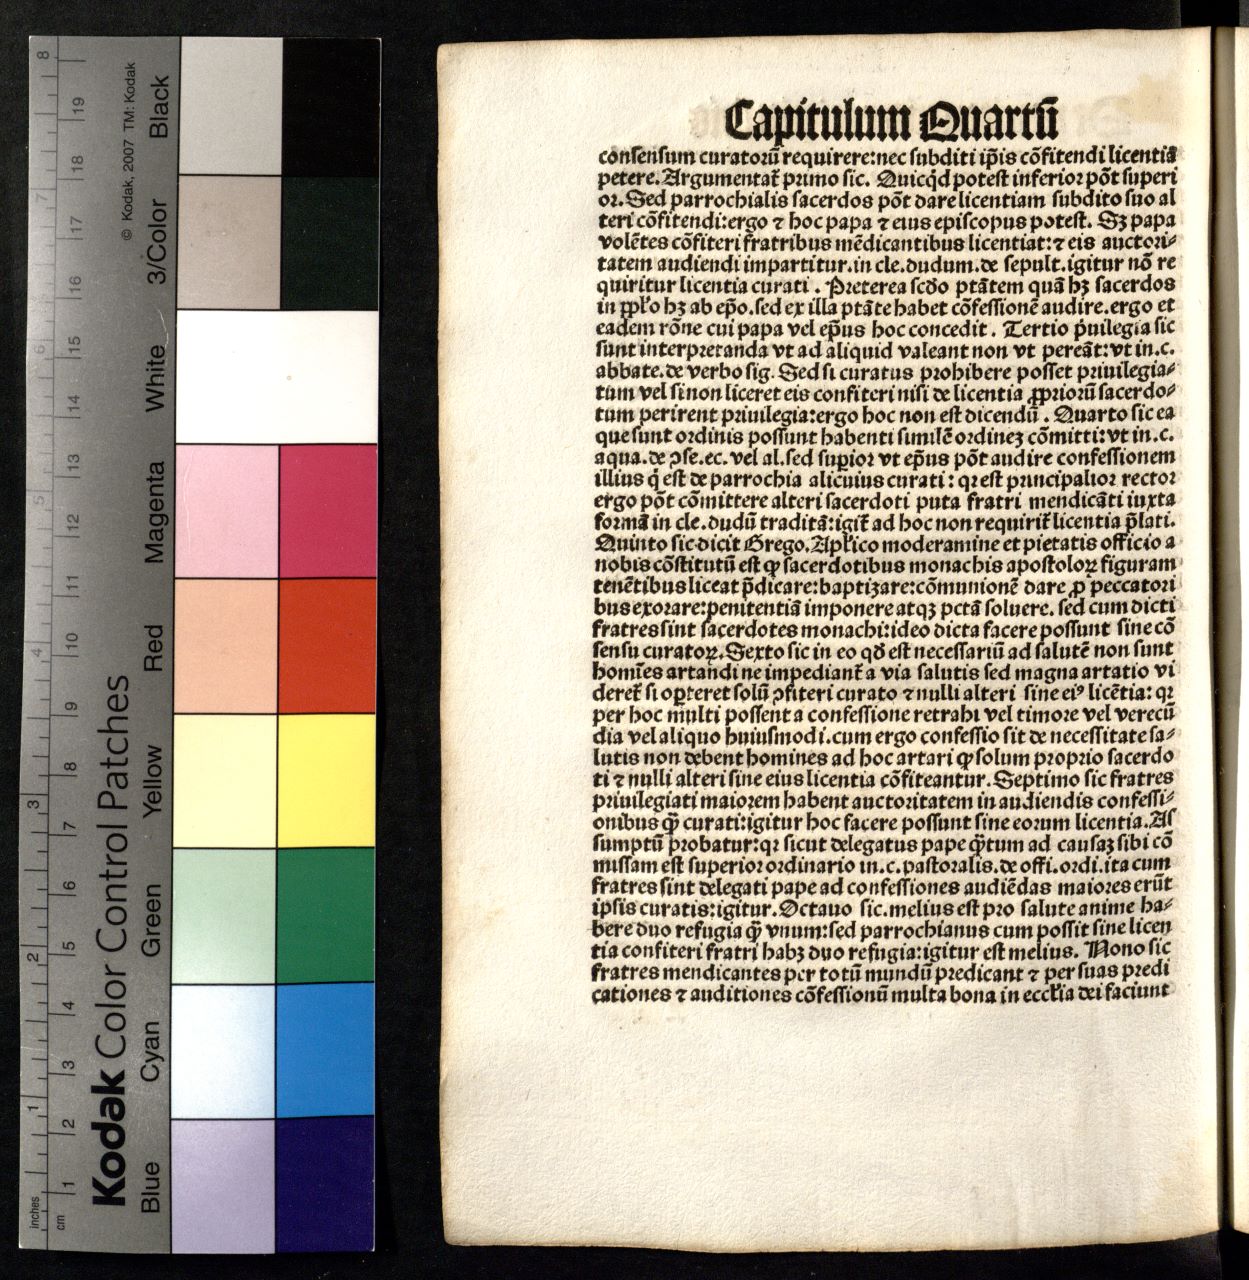 Capitulum Quartū
consensum curatorū requirere:nec subditi ip̄is cōfitendi licentiā
petere. Argumentat̄ primo sic. Quicq̇d potest inferior pōt superi
or. Sed parrochialis sacerdos pōt dare licentiam subdito suo al
teri cōfitendi:ergo ⁊ hoc papa ⁊ eius episcopus potest. Sꝫ papa
volētes cōfiteri fratribus mēdicantibus licentiat:⁊ eis auctori⸗
tatem audiendi impartitur.in cle.dudum.de sepult.igitur nō re
quiritur licentia curati. Preterea scd̄o ptātem quā hꝫ sacerdos
in ꝓpl'o hꝫ ab ep̄o.sed ex illa ptāte habet cōfessionē audire.ergo et
eadem rōne cui papa vel ep̄us hoc concedit. Tertio p̄uilegia sic
sunt interpretanda vt ad aliquid valeant non vt pereāt:vt in.c.
abbate.de verbo sig. Sed si curatus prohibere posset priuilegia⸗
tum vel si non liceret eis confiteri nisi de licentia ꝓpriorū sacerdo⸗
tum perirent priuilegia:ergo hoc non est dicendū. Quarto sic ea
que sunt ordinis possunt habenti similē ordineꝫ cōmitti:vt in.c.
aqua.de ɔse.ec.vel al.sed supior vt ep̄us pōt audire confessionem
illius q̇ est de parrochia alicuius curati: qꝛ est principalior rector
ergo pōt cōmittere alteri sacerdoti puta fratri mendicāti iuxta
formā in cle.dudū traditā:igit̄ ad hoc non requirit̄ licentia p̄lati.
Quinto sic dicit Grego.Apl'ico moderamine et pietatis officio a
nobis cōstitutū est ꝙ sacerdotibus monachis apostoloꝝ figuram
tenētibus liceat p̄dicare:baptizare:cōmunionē dare ꝓ peccatori
bus exorare:penitentiā imponere atqꝫ pctā soluere. sed cum dicti
fratres sint sacerdotes monachi:ideo dicta facere possunt sine cō
sensu curatoꝝ. Sexto sic in eo qd̄ est necessariū ad salutē non sunt
homīes artandi ne impediant̄ a via salutis sed magna artatio vi
deret̄ si oꝑteret solū ɔfiteri curato ⁊ nulli alteri sine eiꝰ licētia: qꝛ
per hoc multi possent a confessione retrahi vel timore vel verecū
dia vel aliquo huiusmodi.cum ergo confessio sit de necessitate sa⸗
lutis non debent homines ad hoc artari ꝙ solum proprio sacerdo
ti ⁊ nulli alteri sine eius licentia cōfiteantur. Septimo sic fratres
priuilegiati maiorem habent auctoritatem in audiendis confessi⸗
onibus ꝙ̄ curati:igitur hoc facere possunt sine eorum licentia. As
sumptū probatur:qꝛ sicut delegatus pape q̄tum ad causaꝫ sibi cō
missam est superior ordinario in.c.pastoralis.de offi.ordi.ita cum
fratres sint delegati pape ad confessiones audiēdas maiores erūt
ipsis curatis:igitur. Octauo sic.melius est pro salute anime ha⸗
bere duo refugia ꝙ̄ vnum:sed parrochianus cum possit sine licen
tia confiteri fratri habꝫ duo refugia:igitur est melius. Nono sic
fratres mendicantes per totū mundū predicant ⁊ per suas predi
cationes ⁊ auditiones cōfessionū multa bona in eccl'ia dei faciunt
Kodak Color Control Patches
© Kodak, 2007 TM: Kodak
Blue Cyan Green Yellow Red Magenta White 3/Color Black
inches 1 2 3 4 5 6 7 8
cm 1 2 3 4 5 6 7 8 9 10 11 12 13 14 15 16 17 18 19